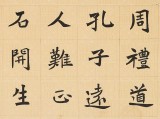 周禮道
孔子遠
人難正
石開生